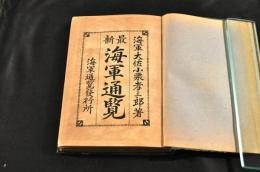 海軍大佐小栗孝三郎著
最新
海軍通覧
海軍通覧發行所